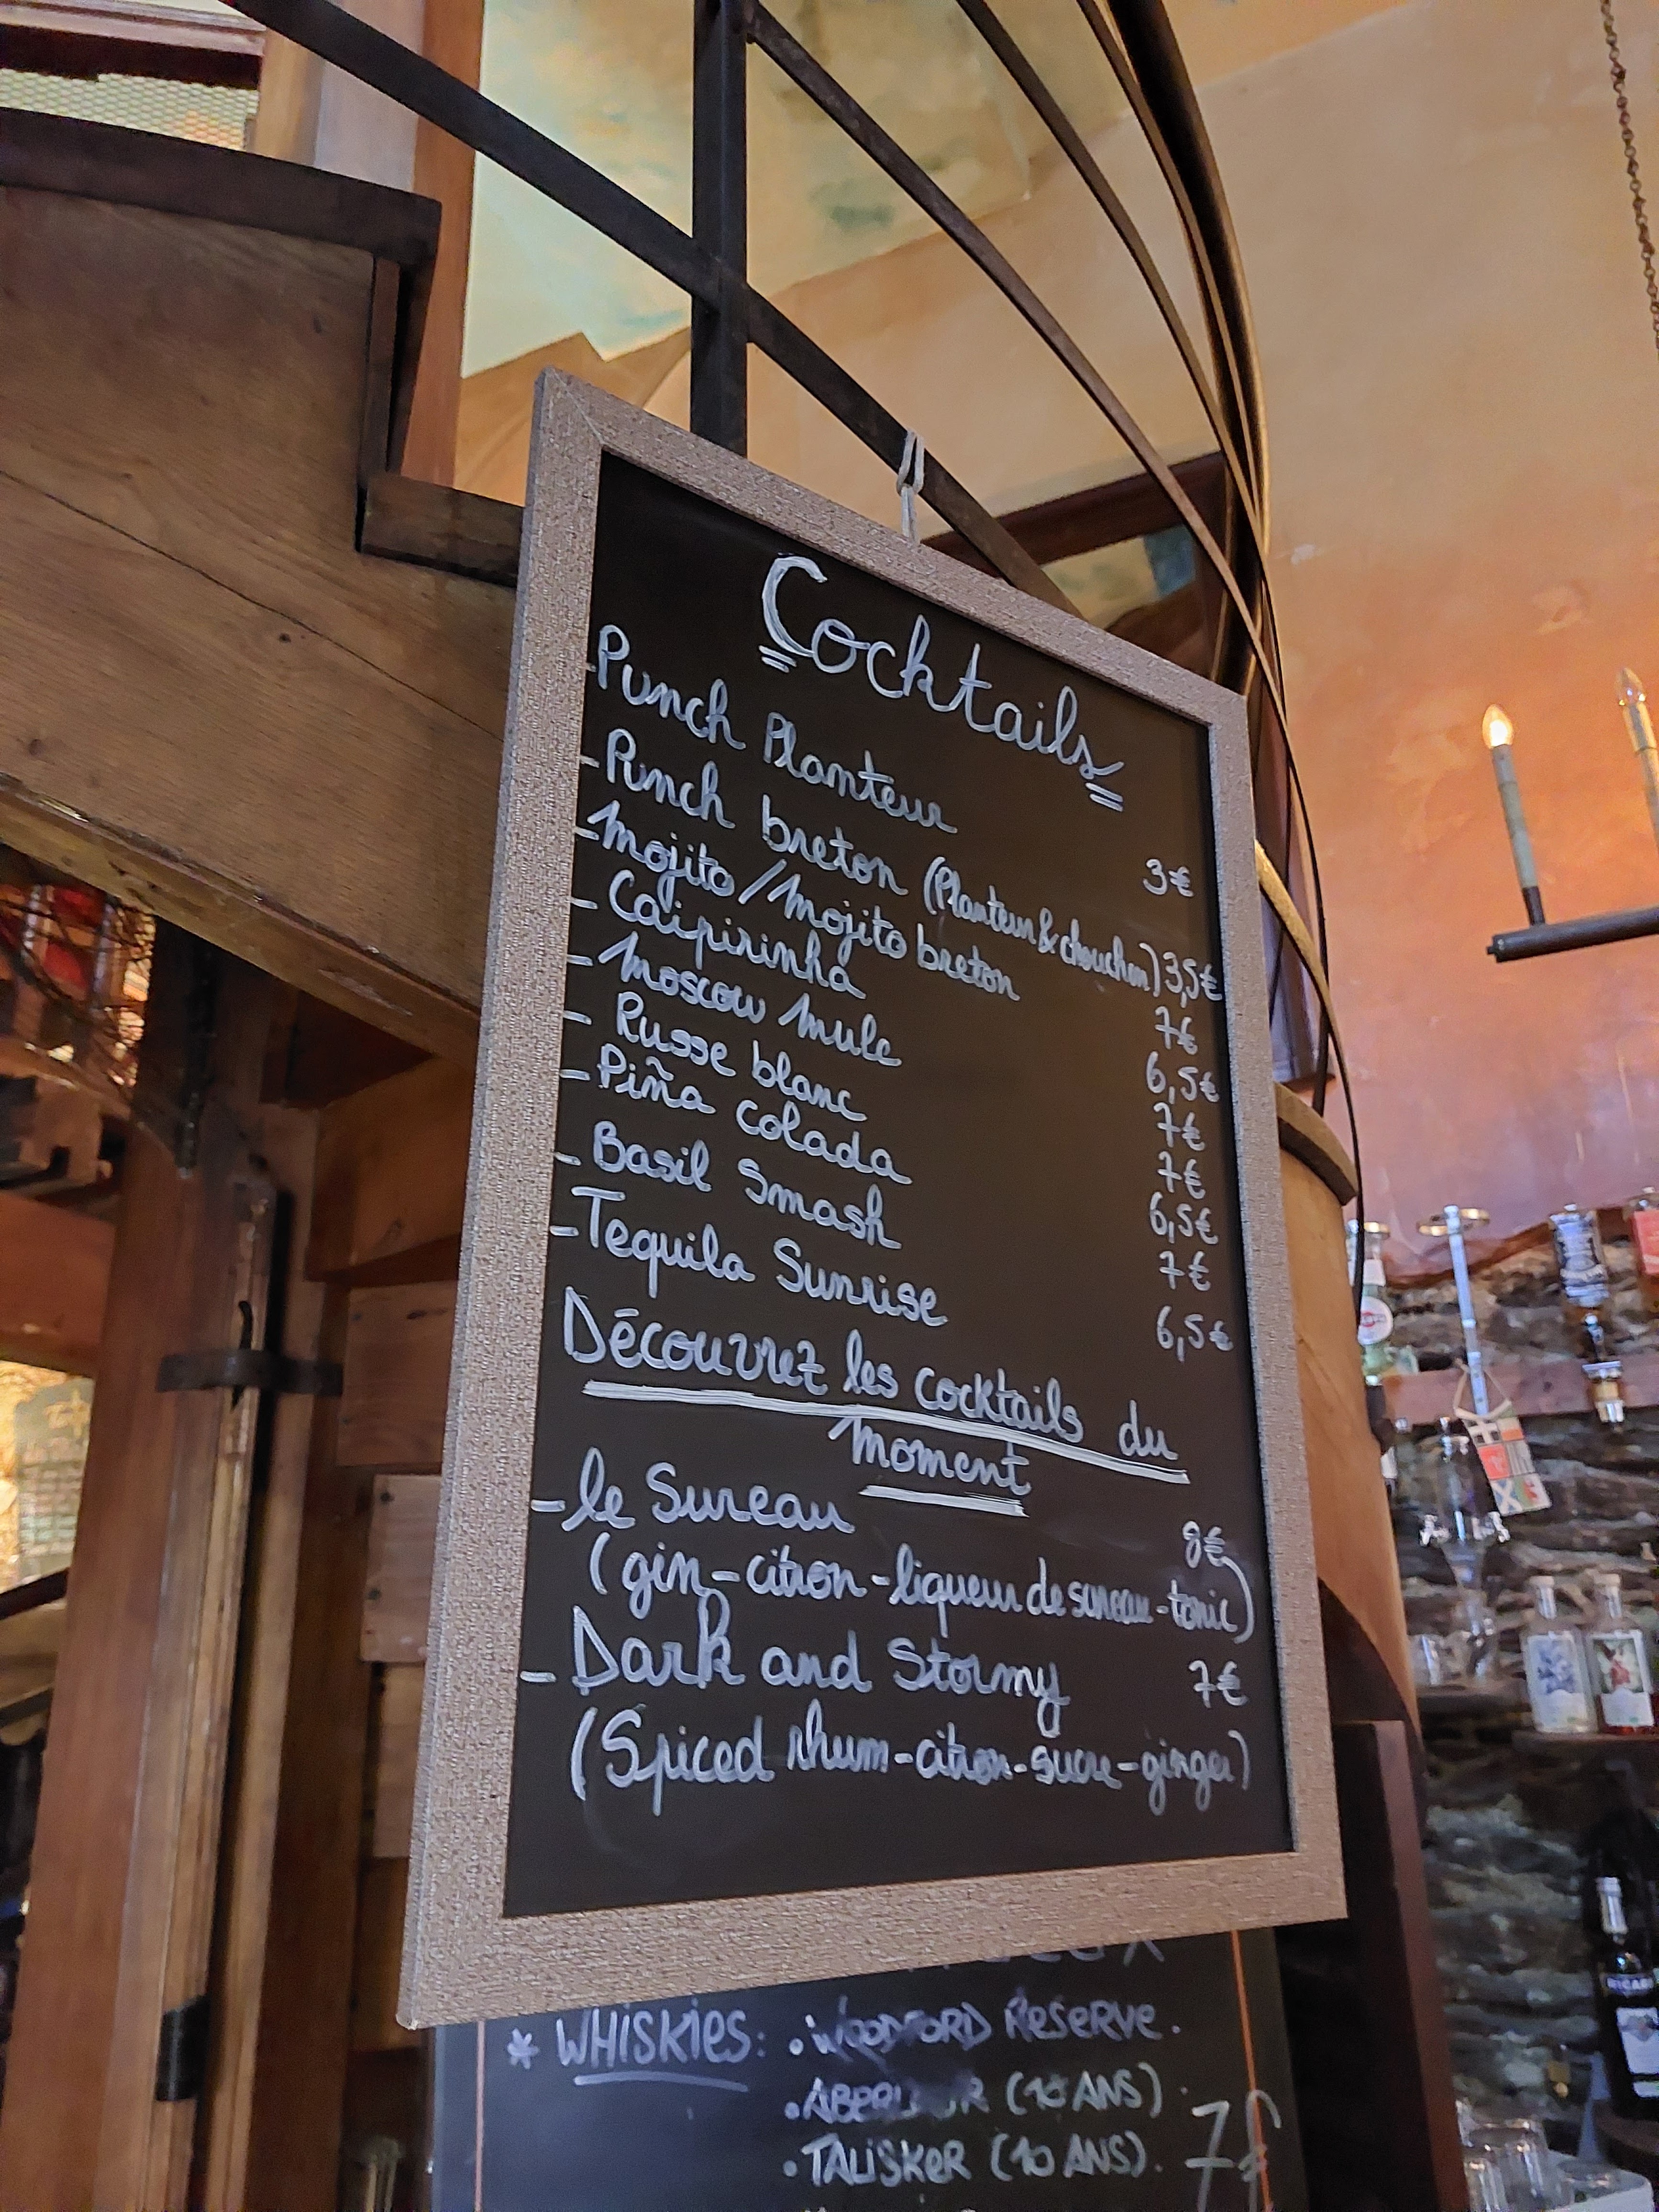 Cocktails
-Punch Planteur 3€
-Punch breton (Planteur & chouchen) 3,5€
-Mojito/Mojito breton 7€
-Caïpirinha 6,5€
-Moscow Mule 7€
-Russe blanc 7€
-Piña colada 6,5€
-Basil Smash 7€
-Tequila Sunrise 6,5€
Découvrez les cocktails du
Moment
-le Sureau 8€
(gin-citron-liqueur de sureau-tonic)
-Dark and Stormy 7€
(Spiced rhum-citron-sucre-ginger)
* WHISKIES: •WOODFORD RESERVE.
•ABERLOUR (10 ANS).
•TALISKER (10 ANS). 7€
RICARD